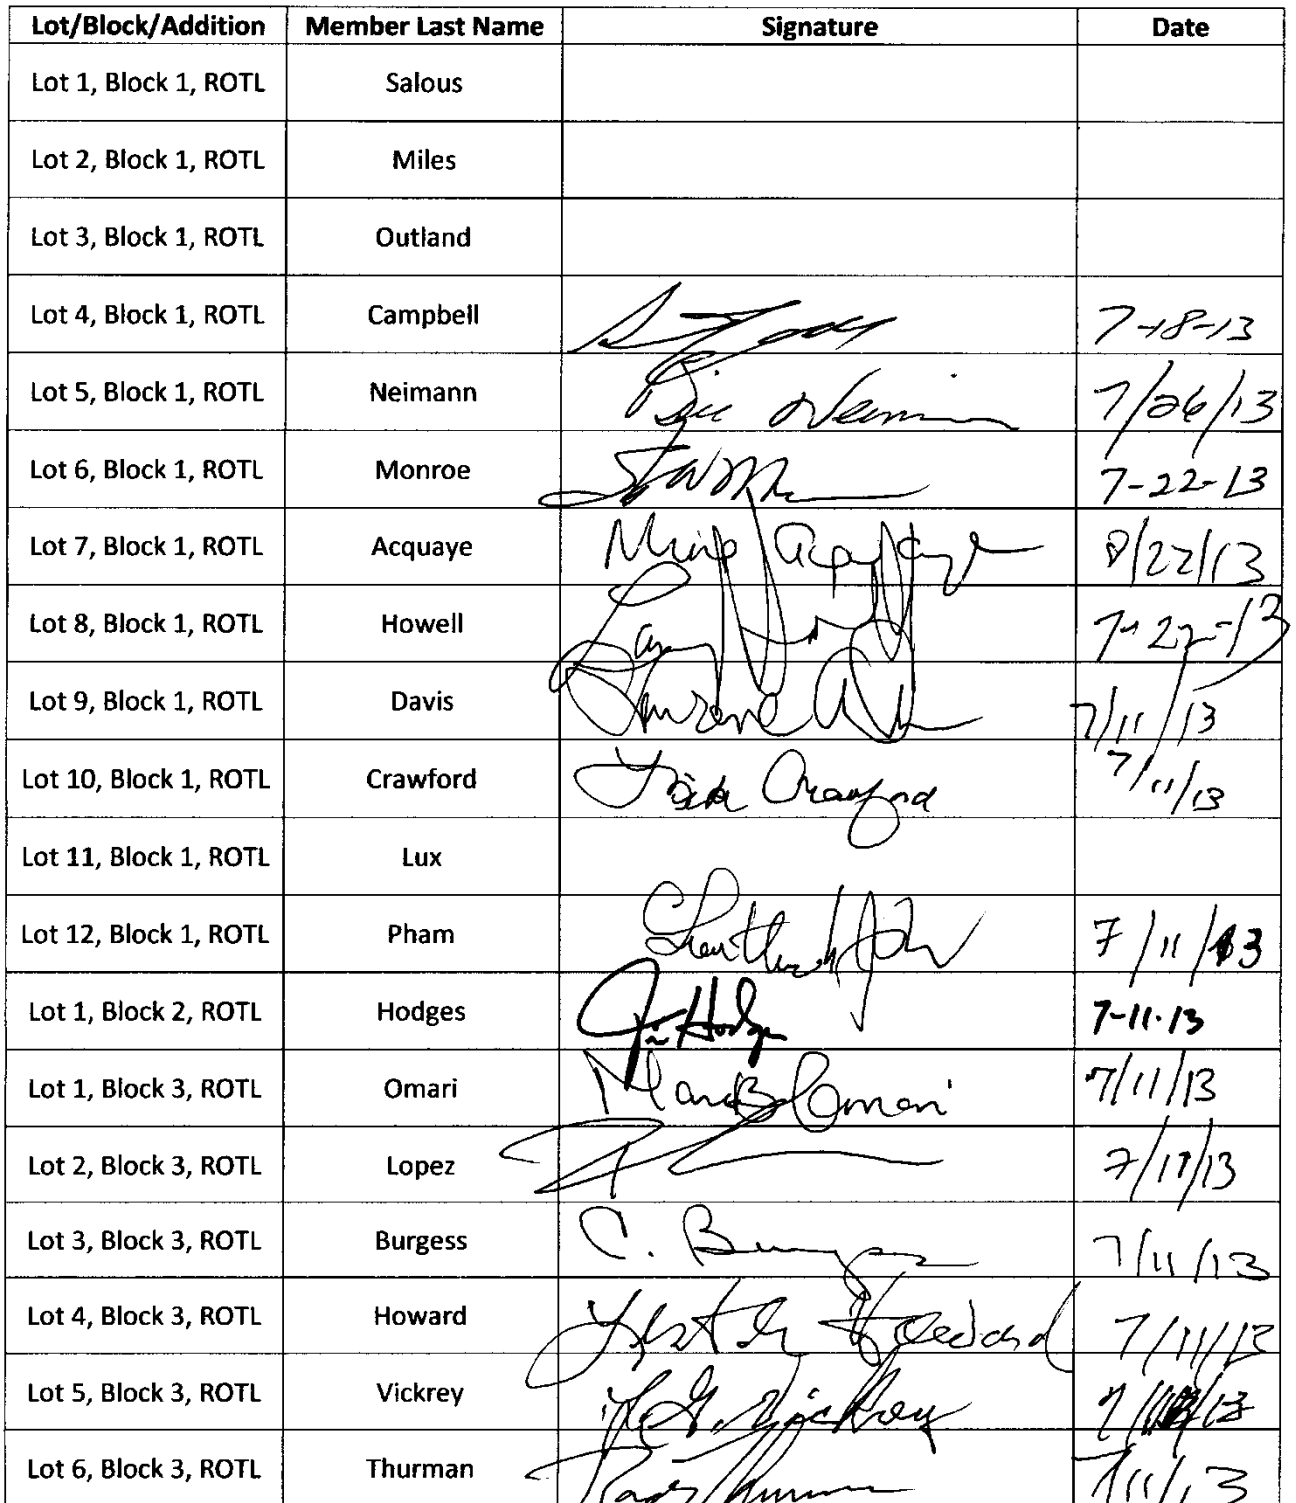 Lot/Block/Addition Member Last Name Signature Date
Lot 1, Block 1, ROTL Salous
Lot 2, Block 1, ROTL Miles
Lot 3, Block 1, ROTL Outland
Lot 4, Block 1, ROTL Campbell 7-18-13
Lot 5, Block 1, ROTL Neimann 7/26/13
Lot 6, Block 1, ROTL Monroe 7-22-13
Lot 7, Block 1, ROTL Acquaye 8/22/13
Lot 8, Block 1, ROTL Howell 7-22-13
Lot 9, Block 1, ROTL Davis 7/11/13
Lot 10, Block 1, ROTL Crawford Crawford 7/11/13
Lot 11, Block 1, ROTL Lux
Lot 12, Block 1, ROTL Pham 7/11/13
Lot 1, Block 2, ROTL Hodges Jim Hodges 7-11-13
Lot 1, Block 3, ROTL Omari Omari 7/11/13
Lot 2, Block 3, ROTL Lopez 7/11/13
Lot 3, Block 3, ROTL Burgess C. Burgess 7/11/13
Lot 4, Block 3, ROTL Howard 7/11/13
Lot 5, Block 3, ROTL Vickrey Vickrey
Lot 6, Block 3, ROTL Thurman 7/11/13